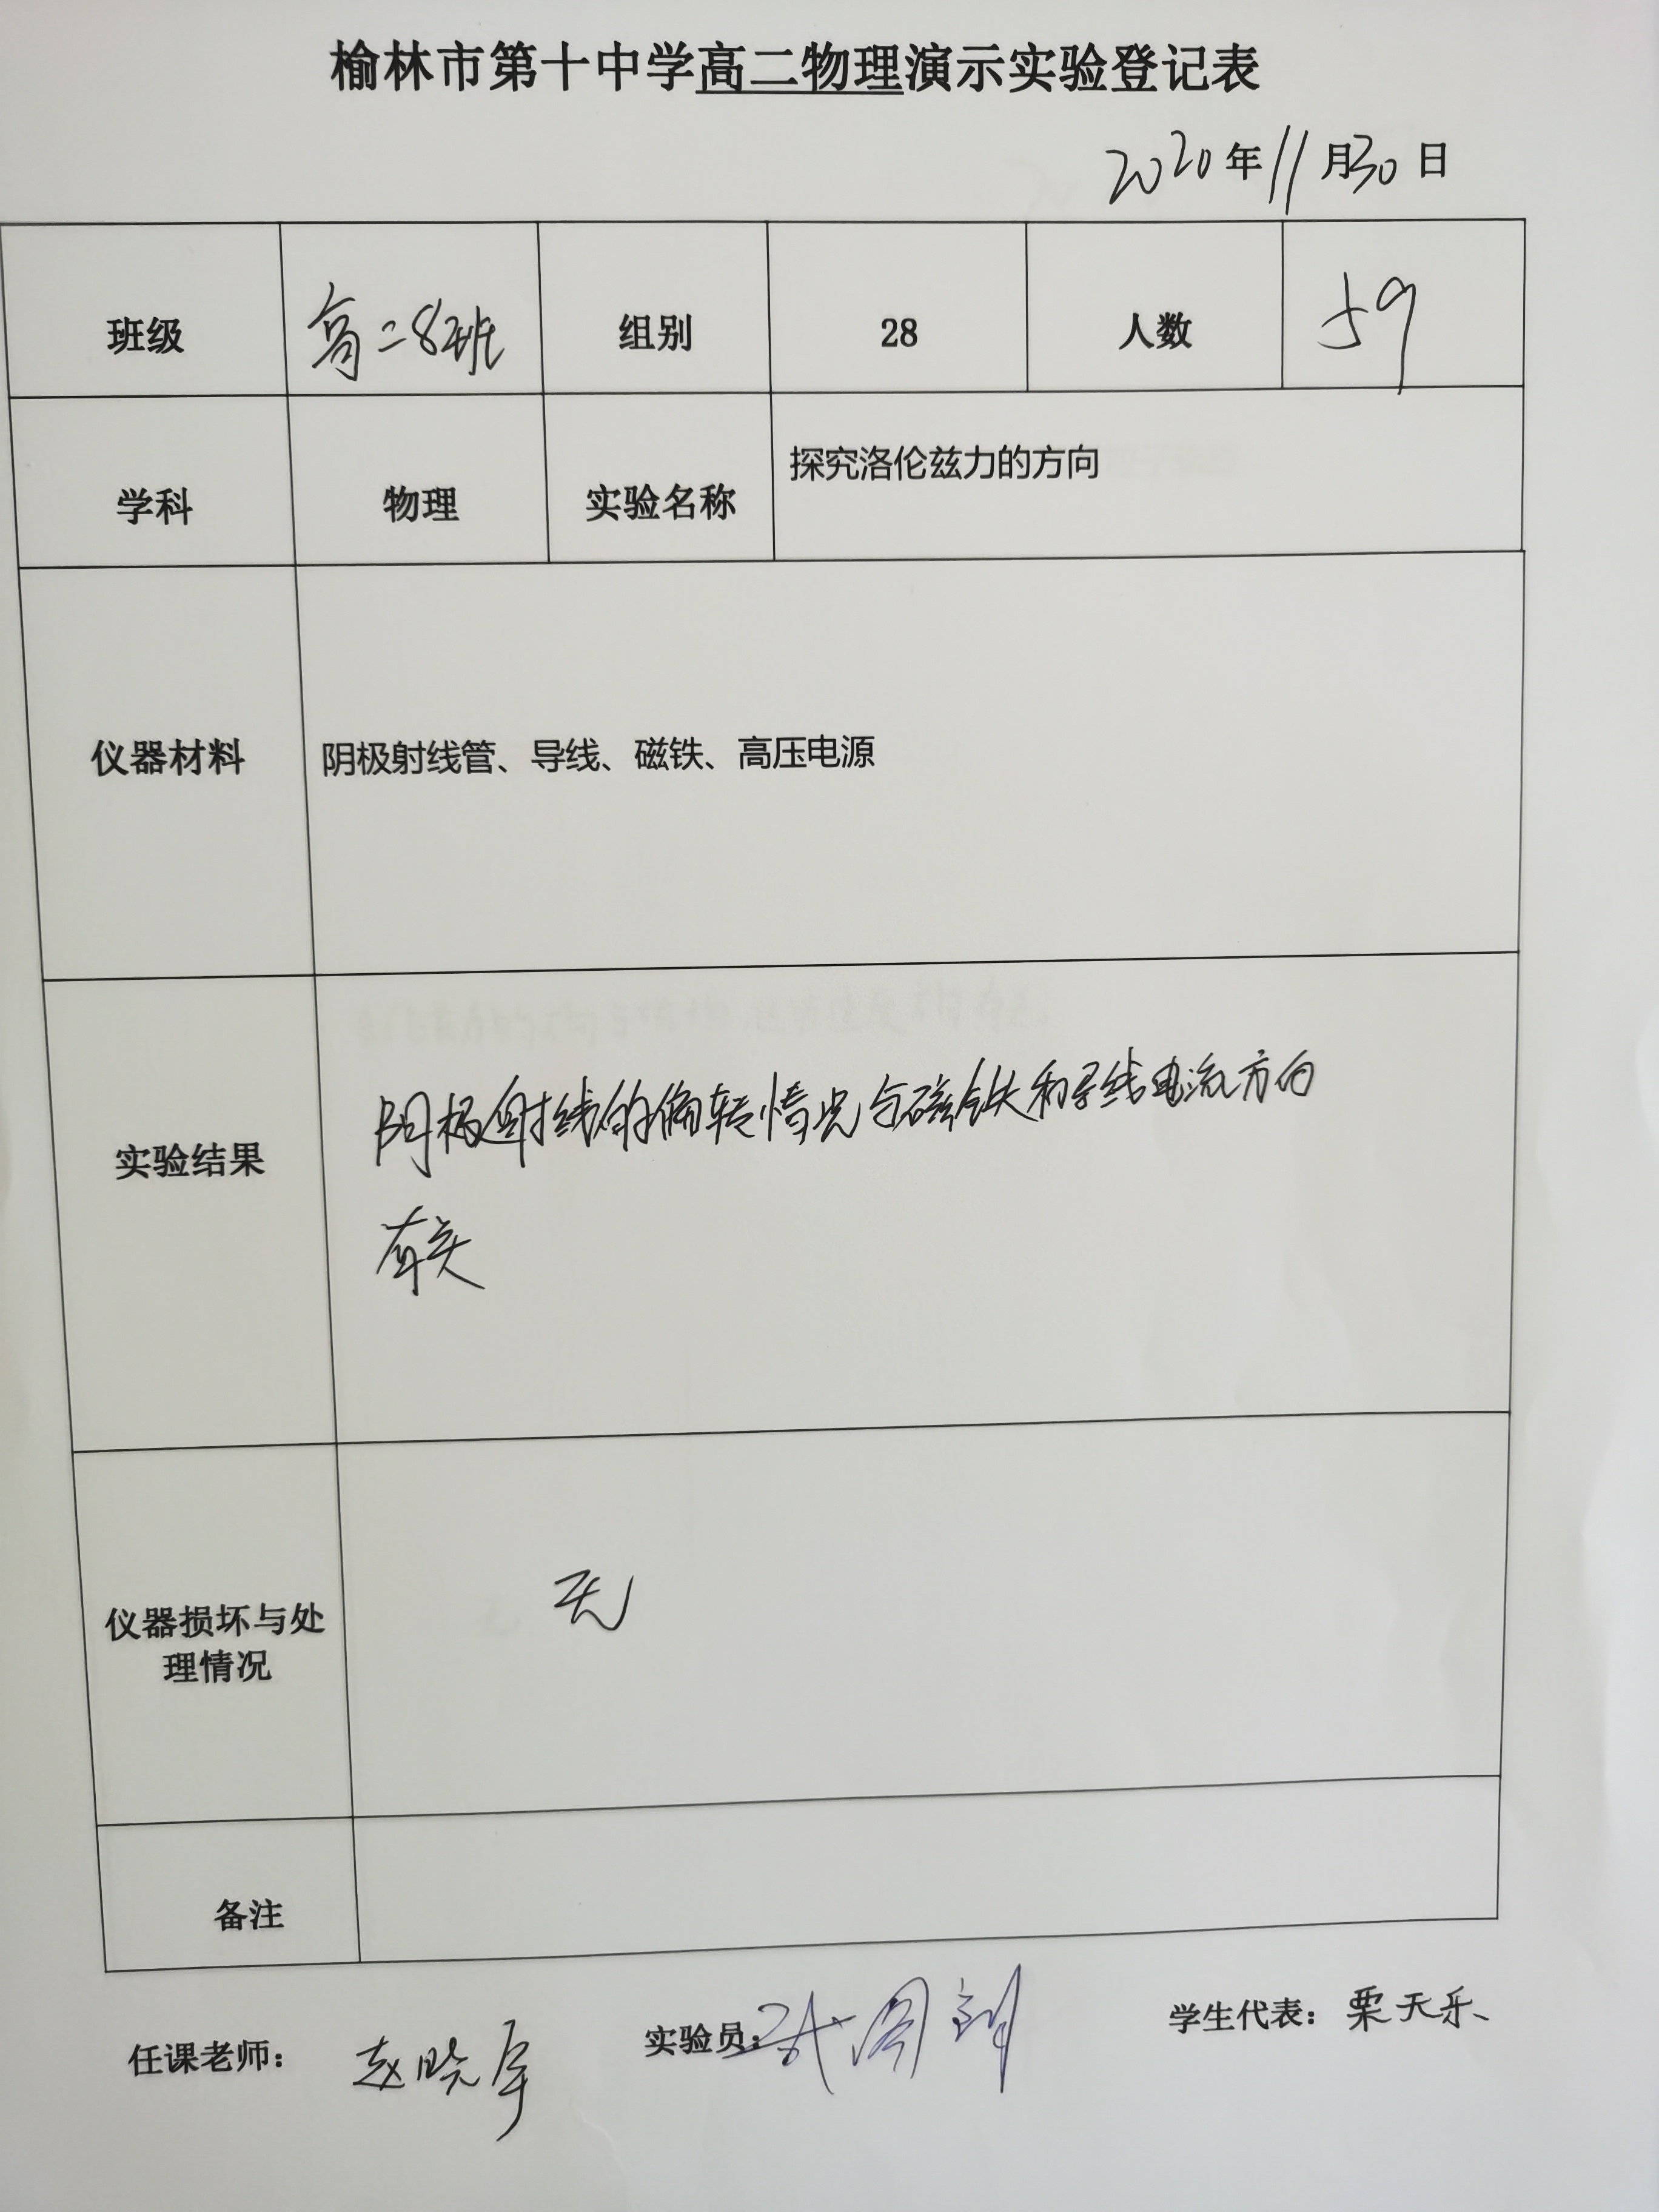 榆林市第十中学高二物理演示实验登记表
2020年11月30日
班级 高二8班 组别 28 人数 59
学科 物理 实验名称 探究洛伦兹力的方向
仪器材料 阴极射线管、导线、磁铁、高压电源
阴极射线的偏转情况与磁铁和导线电流方向
实验结果
有关
仪器损坏与处
理情况
无
备注
任课老师： 赵晓宇 实验员： 学生代表：栗天乐